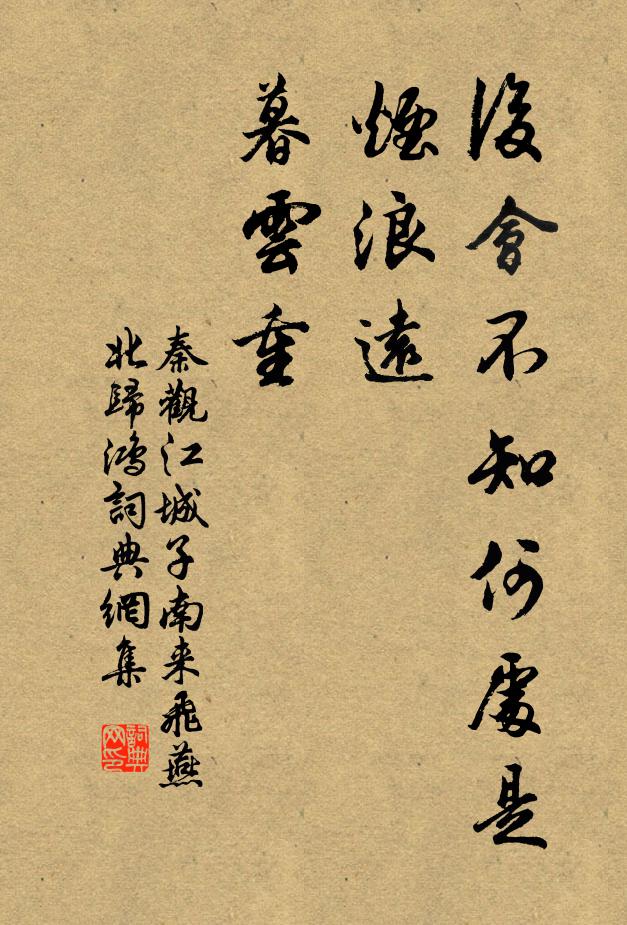 後會不知何處是
煙浪遠
暮雲重
秦觀江城子南来飛燕
北歸鴻詞典網集
詞典网印